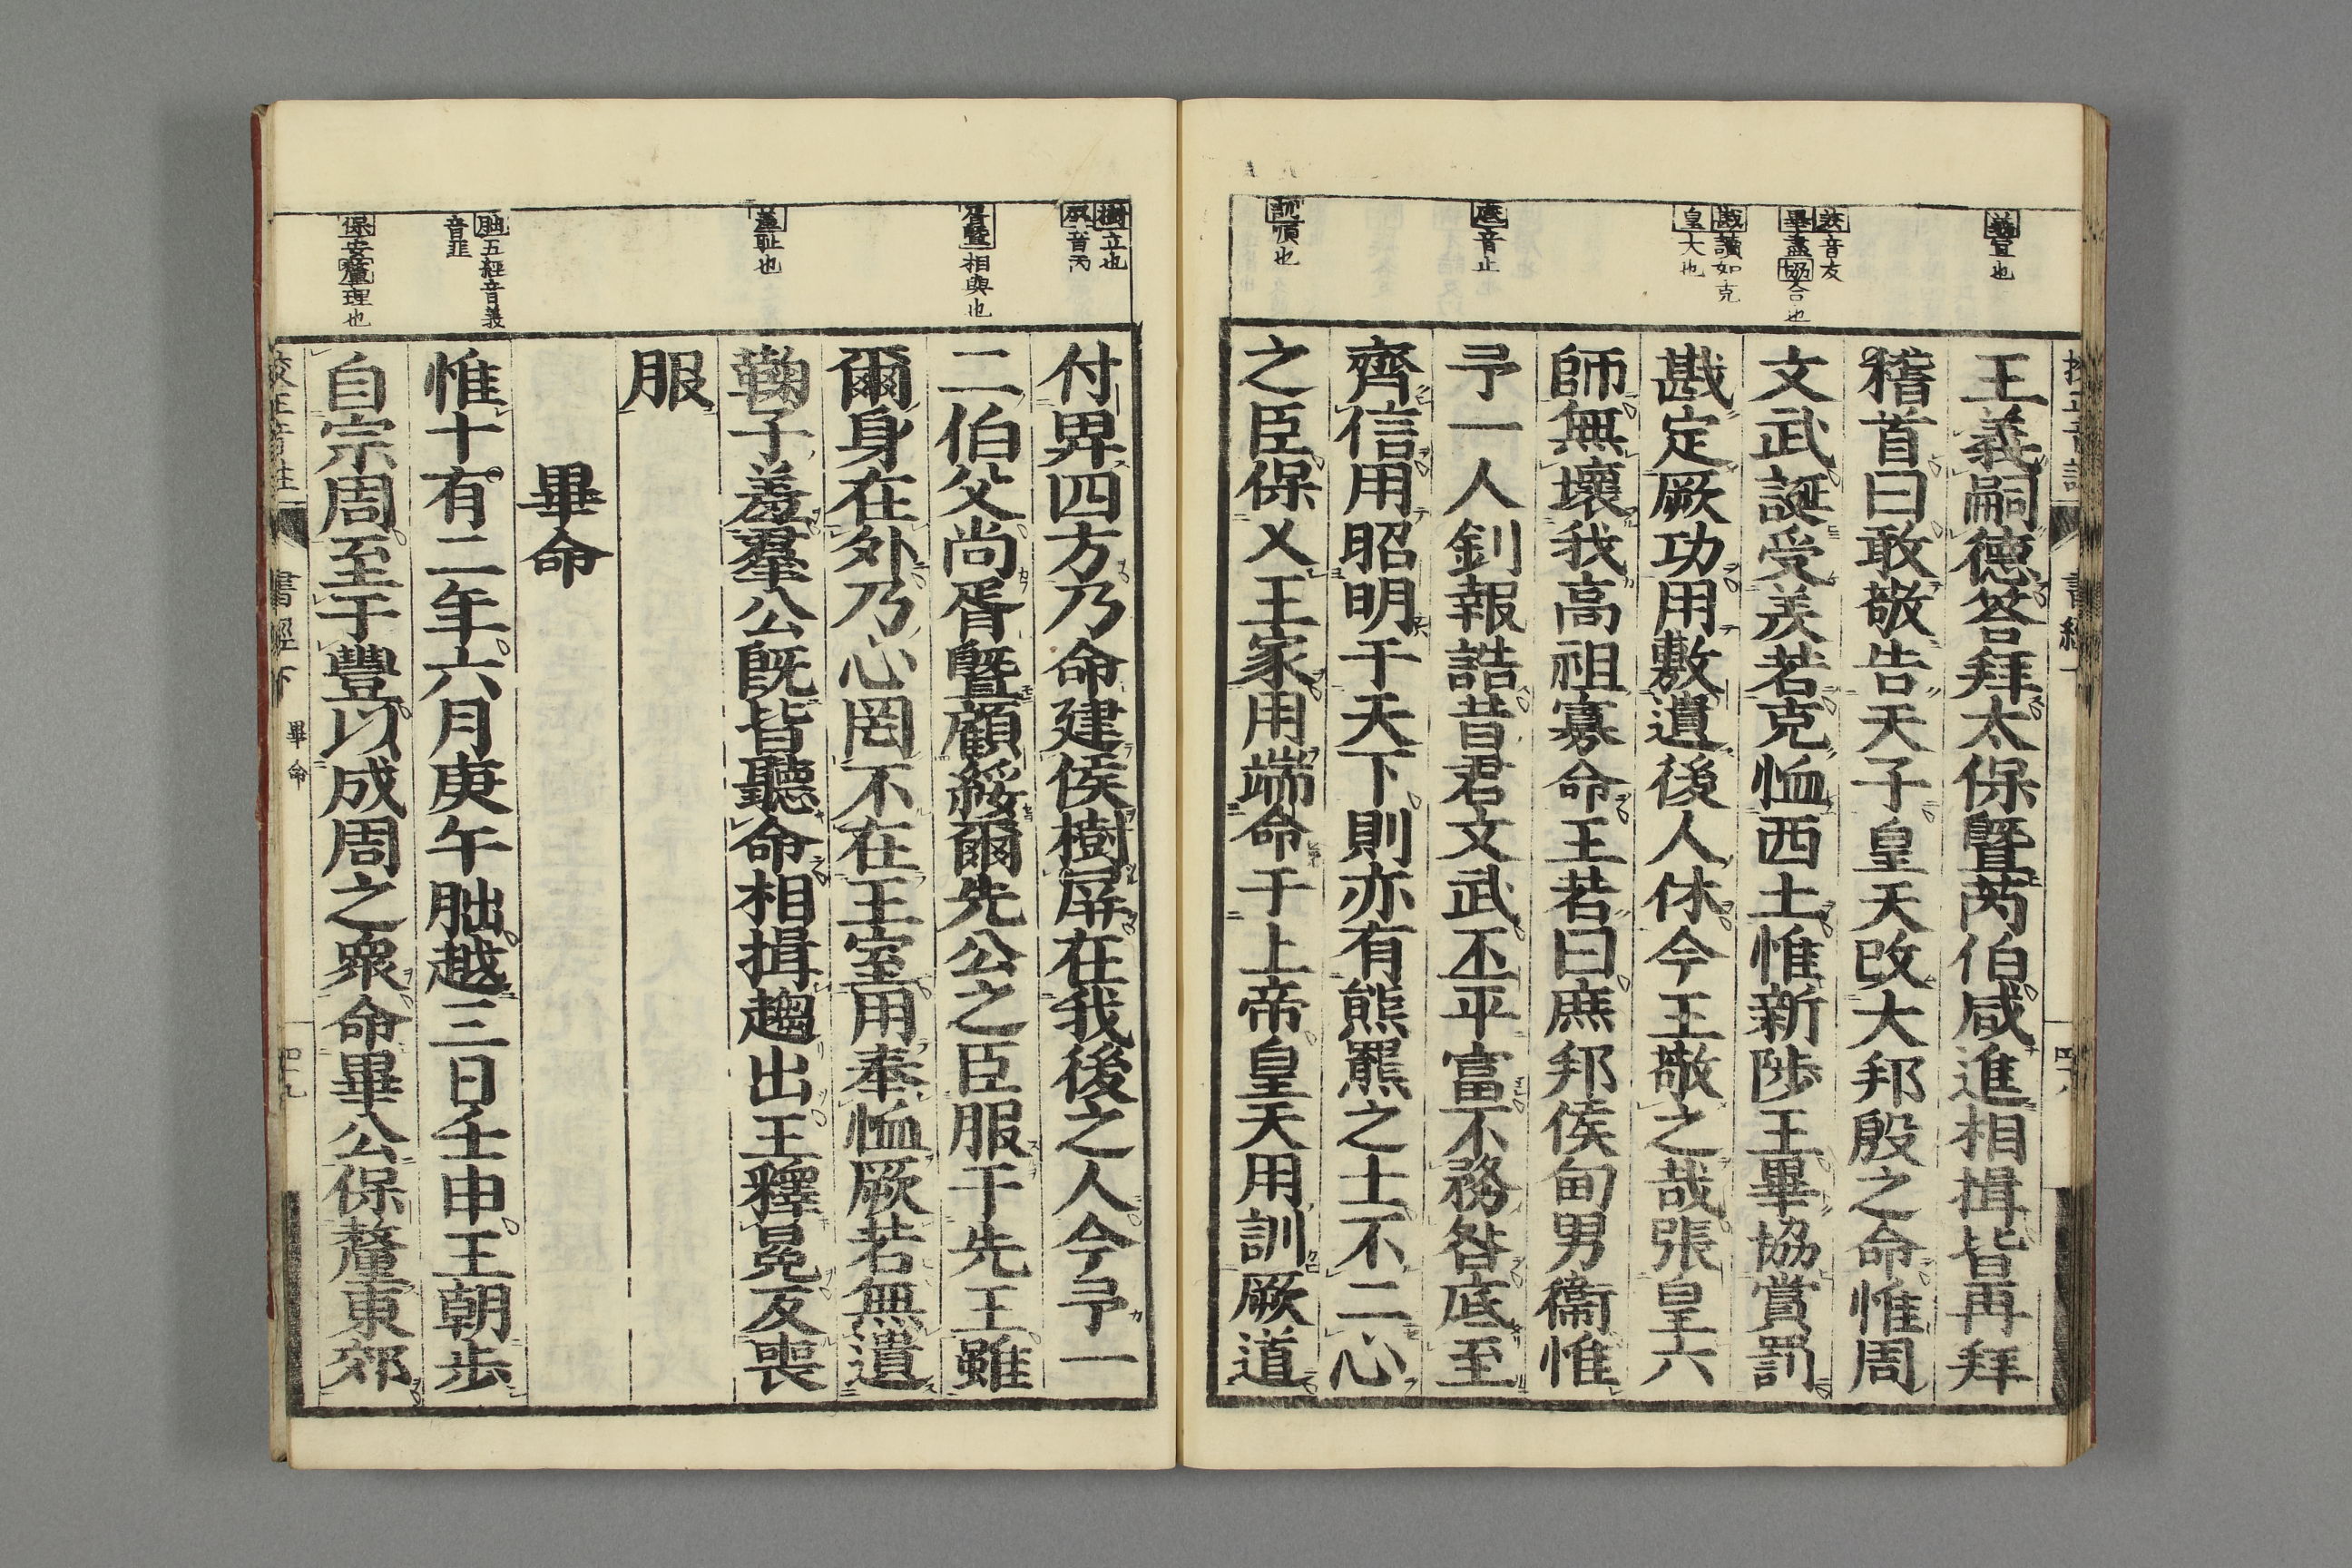 義宣也
羑音友
畢盡協合也
戡讀如克
皇大也
底音止
訓順也
王義嗣德荅拜太保曁芮伯咸進相揖皆再拜
稽首曰敢敬告天子皇天改大邦殷之命惟周
文武誕受羑若克恤西土惟新陟王畢協賞罰
戡定厥功用敷遺後人休今王敬之哉張皇六
師無壞我高祖寡命王若曰庶邦侯甸男衞惟
予一人釗報誥昔君文武丕平富不務咎底至
齊信用昭明于天下則亦有熊羆之士不二心
之臣保乂王家用端命于上帝皇天用訓厥道
樹立也
屏音丙
胥曁相與也
羞耻也
朏五經音義
音韭
保安釐理也
付畀四方乃命建侯樹屏在我後之人今予一
二伯父尚胥曁顧綏爾先公之臣服于先王雖
爾身在外乃心罔不在王室用奉恤厥若無遺
鞠子羞羣公旣皆聽命相揖趨出王釋冕反喪
服
畢命
惟十有二年六月庚午朏越三日壬申王朝步
自宗周至于豐以成周之衆命畢公保釐東郊
書經下 畢命 四十九